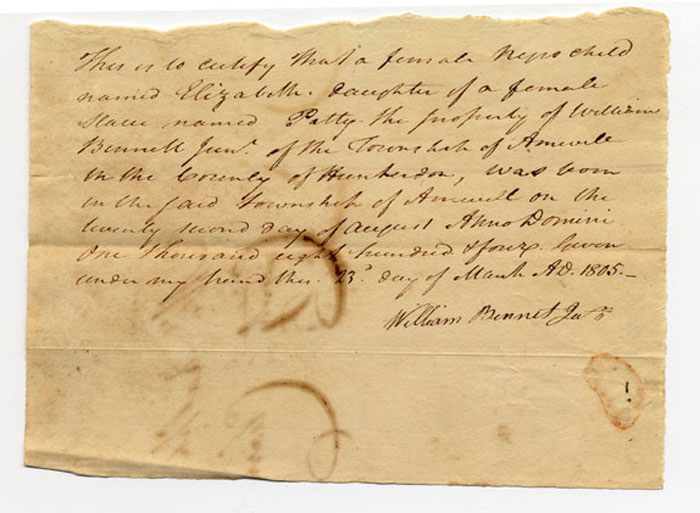 This is to certify that a female Negro child
named Elizabeth. Daughter of a female
slave named Patty the property of William
Bennett Junr. of the Township of Amwell
in the County of Hunterdon, was born
in the said Township of Amwell on the
twenty second day of august Anno Domini
One Thousand eight hundred & four. Given
under my hand this. 23d. day of March AD. 1805.—
William Bennet Junr